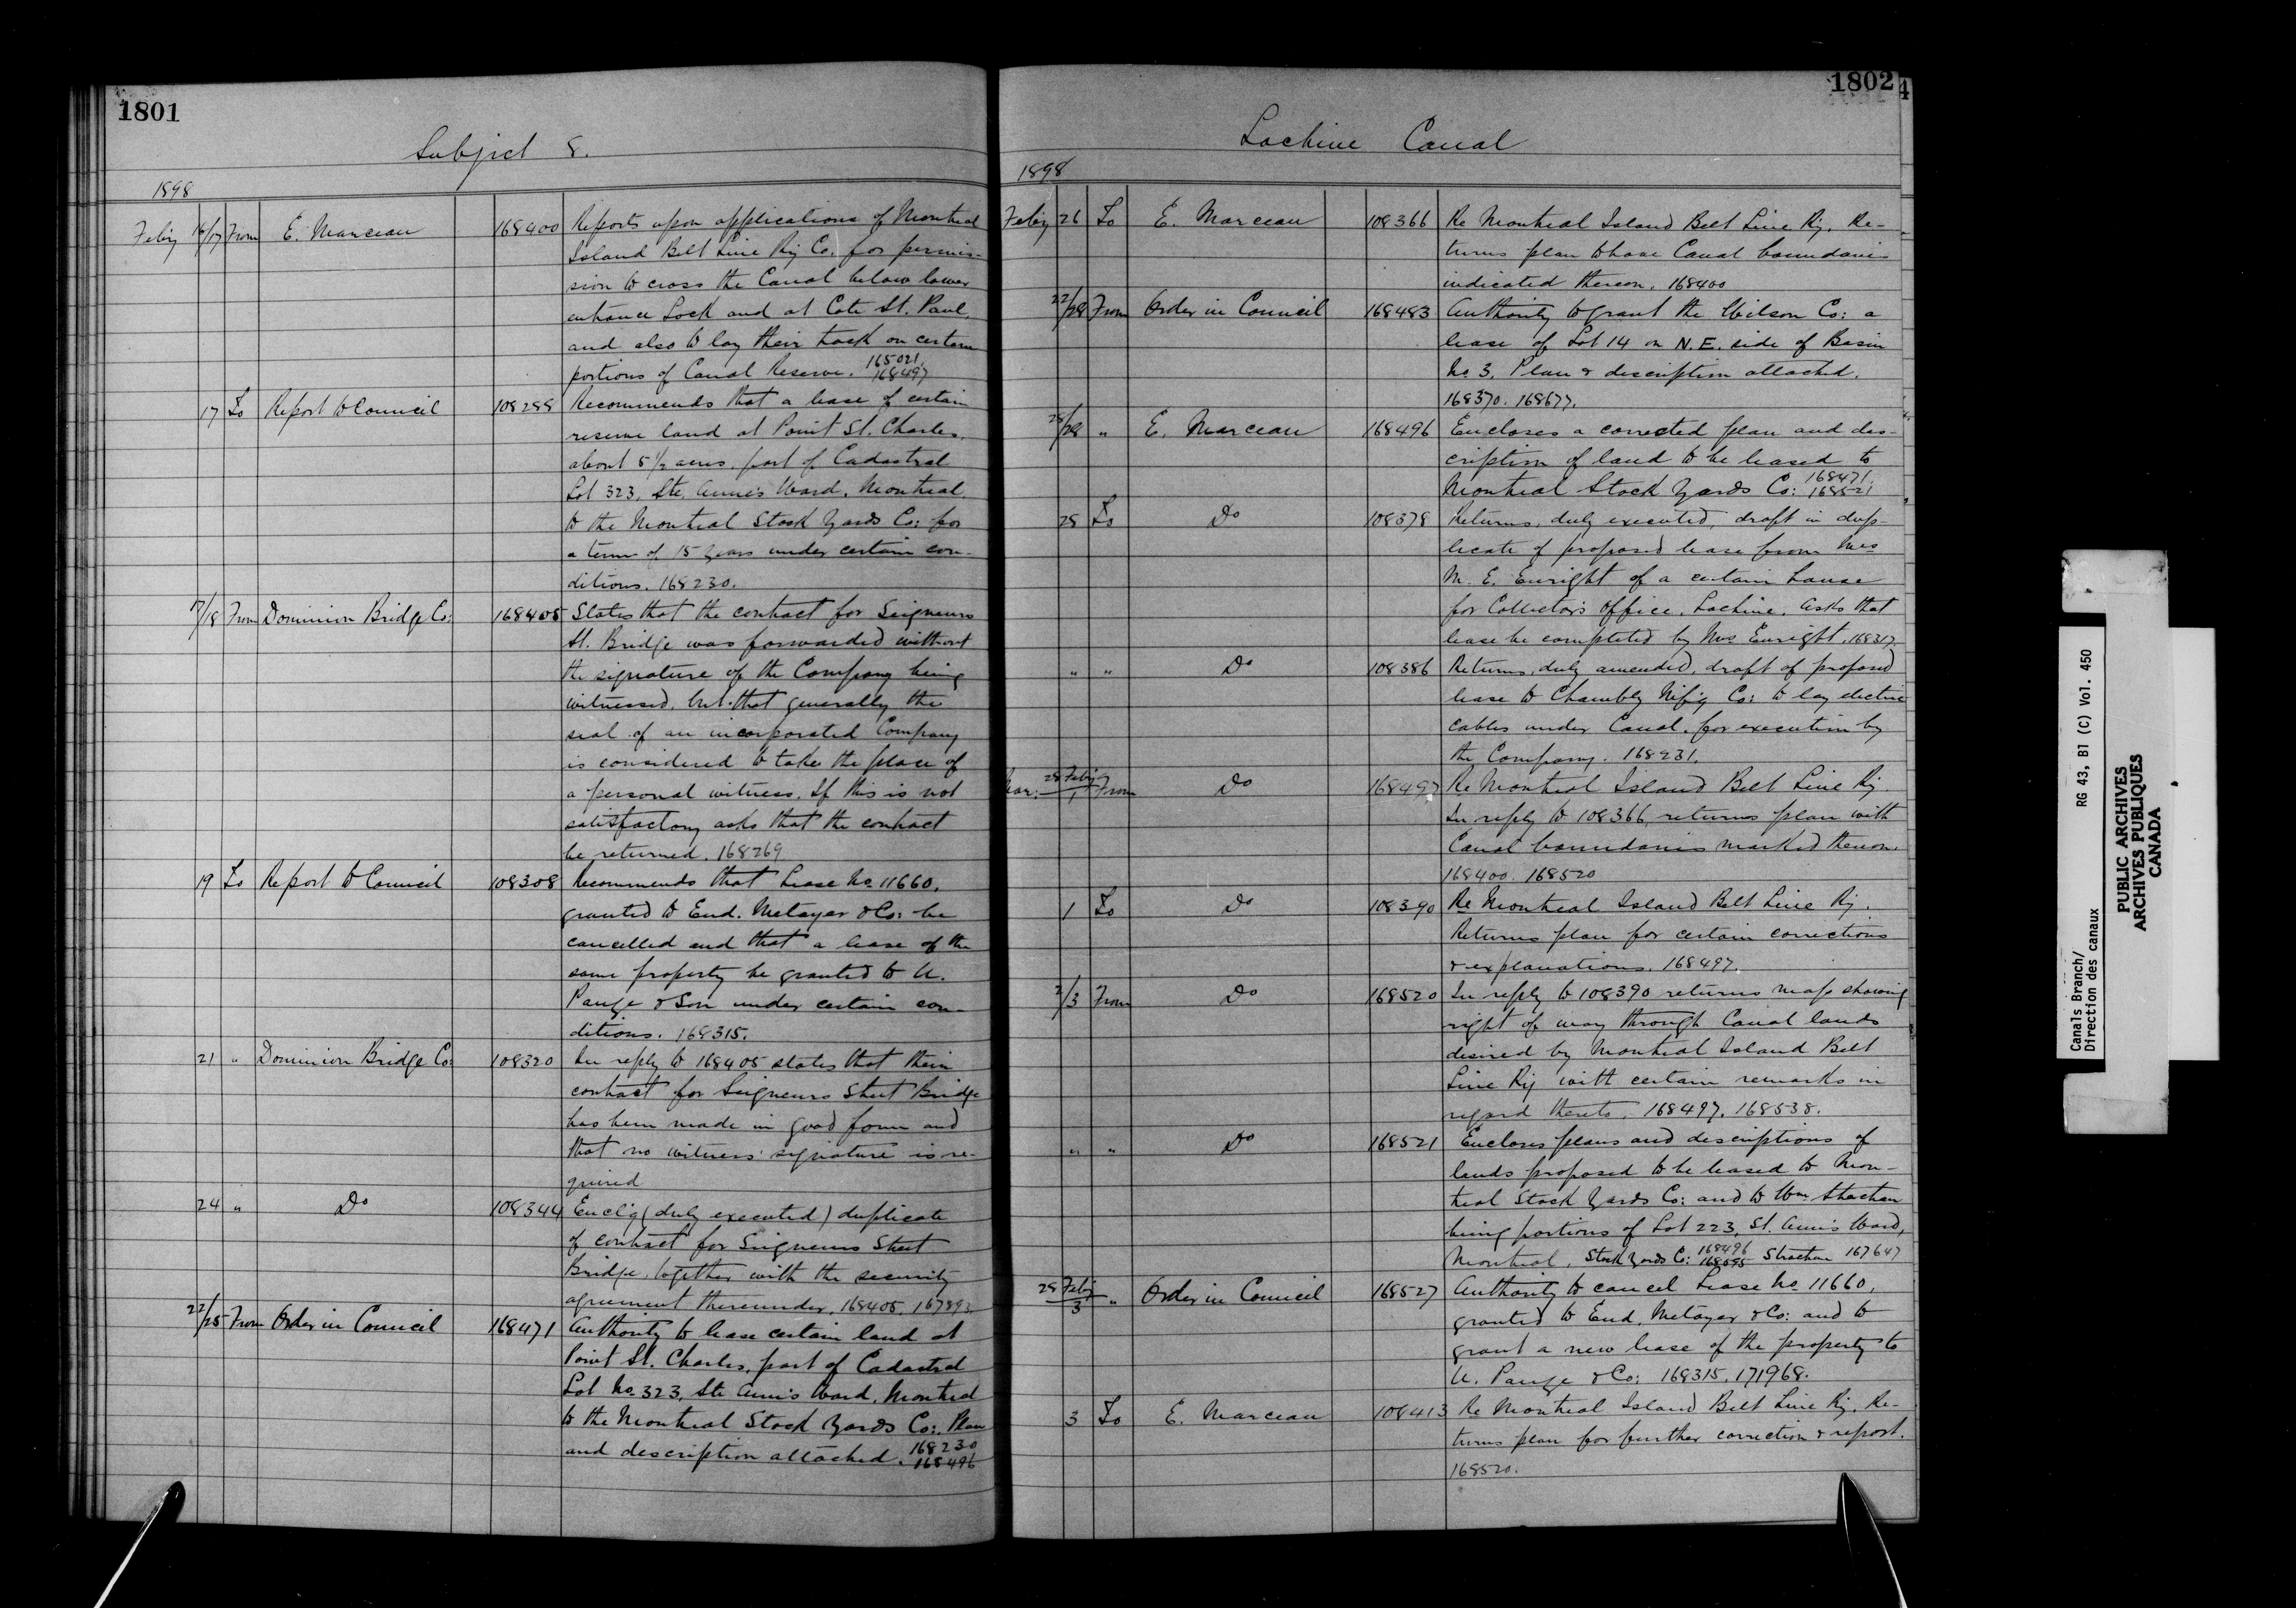 1801
Subject 8.
1898
Feb'y 16/17 From E. Marceau 168400 Reports upon applications of Montreal
Island Belt Line Ry Co. for permis-
sion to cross the Canal below lower
entrance Lock and at Cote St. Paul,
and also to lay their track on certain
portions of Canal Reserve. 165021 168497
17 To Report to Council 108288 Recommends that a lease of certain
reserve land at Point St. Charles,
about 5 1/2 acres, part of Cadastral
Lot 323, Ste. Anne's Ward, Montreal,
to the Montreal Stock Yards Co: for
a term of 15 years under certain con-
ditions. 168230.
17/18 From Dominion Bridge Co: 168405 States that the contract for Seigneurs
St. Bridge was forwarded without
the signature of the Company being
witnessed, but that generally the
seal of an incorporated Company
is considered to take the place of
a personal witness. If this is not
satisfactory asks that the contract
be returned. 168269
19 To Report to Council 108308 Recommends that Lease No. 11660,
granted to Eud. Metayer & Co: be
cancelled and that a lease of the
same property be granted to U.
Pauze & Son under certain con-
ditions. 168315.
21 " Dominion Bridge Co: 108320 In reply to 168405 states that their
contract for Seigneurs Street Bridge
has been made in good form and
that no witness' signature is re-
quired
24 " Do 108344 Encl'g (duly executed) duplicate
of contract for Seigneurs Street
Bridge, together with the security
agreement thereunder. 168405. 167893.
22/25 From Order in Council 168471 Authority to lease certain land at
Point St. Charles, part of Cadastral
Lot No. 323, Ste Anne's Ward, Montreal
to the Montreal Stock Yards Co:. Plan
and description attached. 168230 168496
1802
Lachine Canal
1898
Feb'y 26 To E. Marceau 108366 Re Montreal Island Belt Line Ry. Re-
turns plan to have Canal boundaries
indicated thereon. 168400
22/28 From Order in Council 168483 Authority to grant the Wilson Co: a
lease of Lot 14 on N.E. side of Basin
No. 3. Plan & description attached.
168370. 168677.
28/28 " E. Marceau 168496 Encloses a corrected plan and des-
cription of land to be leased to
Montreal Stock Yards Co: 168471 168521
28 To Do 108378 Returns, duly executed, draft in dup-
licate of proposed lease from Mrs
M. E. Enright of a certain house
for Collector's Office, Lachine. Asks that
lease be completed by Mrs Enright. 168317
" " Do 108386 Returns, duly amended, draft of proposed
lease to Chambly M'f'g Co: to lay electric
cables under Canal, for execution by
the Company. 168231.
Mar: 28 Feb'y/1 From Do 168497 Re Montreal Island Belt Line Ry.
In reply to 108366, returns plan with
Canal boundaries marked thereon.
168400. 168520
1 To Do 108390 Re Montreal Island Belt Line Ry.
Returns plan for certain corrections
& explanations. 168497.
2/3 From Do 168520 In reply to 108390 returns map showing
right of way through Canal lands
desired by Montreal Island Belt
Line Ry with certain remarks in
regard thereto. 168497. 168538.
" " Do 168521 Encloses plans and descriptions of
lands proposed to be leased to Mon-
treal Stock Yards Co: and to Wm Strachan
being portions of Lot 223, St. Ann's Ward,
Montreal. Stock Yards Co: 168496 168595 Strachan 167647
28 Feb'y/3 " Order in Council 168527 Authority to cancel Lease No. 11660,
granted to Eud. Metayer & Co: and to
grant a new lease of the property to
U. Pauze & Co: 168315. 171968.
3 To E. Marceau 108413 Re Montreal Island Belt Line Ry. Re-
turns plan for further correction & report.
168520.
Canals Branch/
Direction des canaux
RG 43, B1 (C) Vol. 450
PUBLIC ARCHIVES
ARCHIVES PUBLIQUES
CANADA